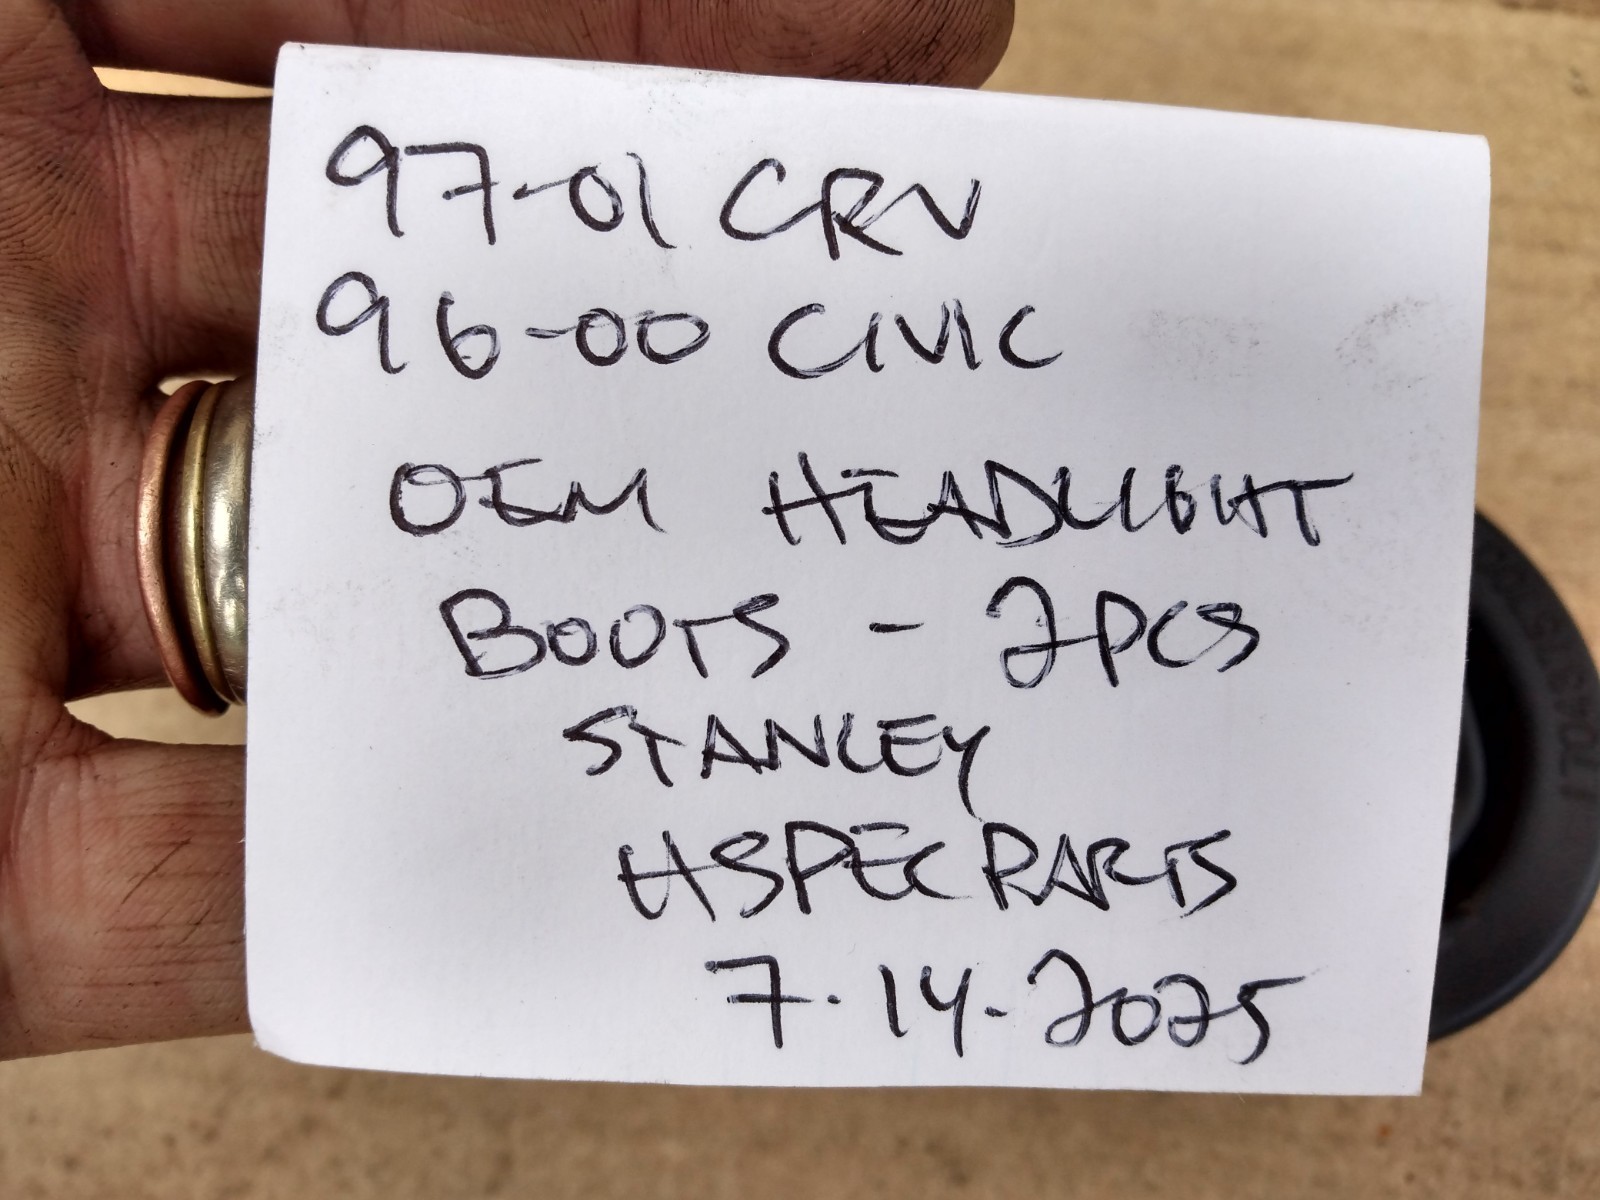 97-01 CRV
96-00 CIVIC
OEM HEADLIGHT
BOOTS - 2PCS
STANLEY
HSPEC PARTS
7.14-2025